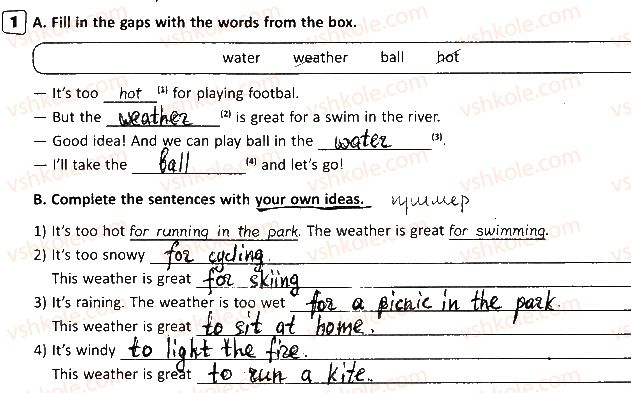 1 A. Fill in the gaps with the words from the box.
water weather ball hot
— It's too hot (1) for playing footbal.
— But the weather (2) is great for a swim in the river.
— Good idea! And we can play ball in the water (3).
— I'll take the ball (4) and let's go!
B. Complete the sentences with your own ideas. пример
1) It's too hot for running in the park. The weather is great for swimming.
2) It's too snowy for cycling.
This weather is great for skiing
3) It's raining. The weather is too wet for a picnic in the park.
This weather is great to sit at home.
4) It's windy to light the fire.
This weather is great to run a kite.